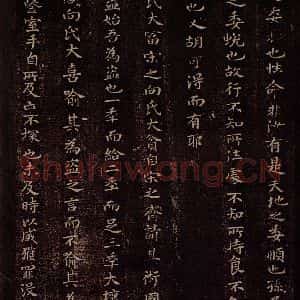 也性命非汝有是天地之委順也孫
之委蛻也故行不知所往處不知所持食不
也又胡可得而有耶
氏大富宋之向氏大貧自宋之齊請其術國
盜始吾為盜也一年而給二年而足三年大穰
向氏大喜喻其為盜之言而不喻其為
鑿室手目所及亡不探也未及時以贓獲罪沒
Shufawang.CN